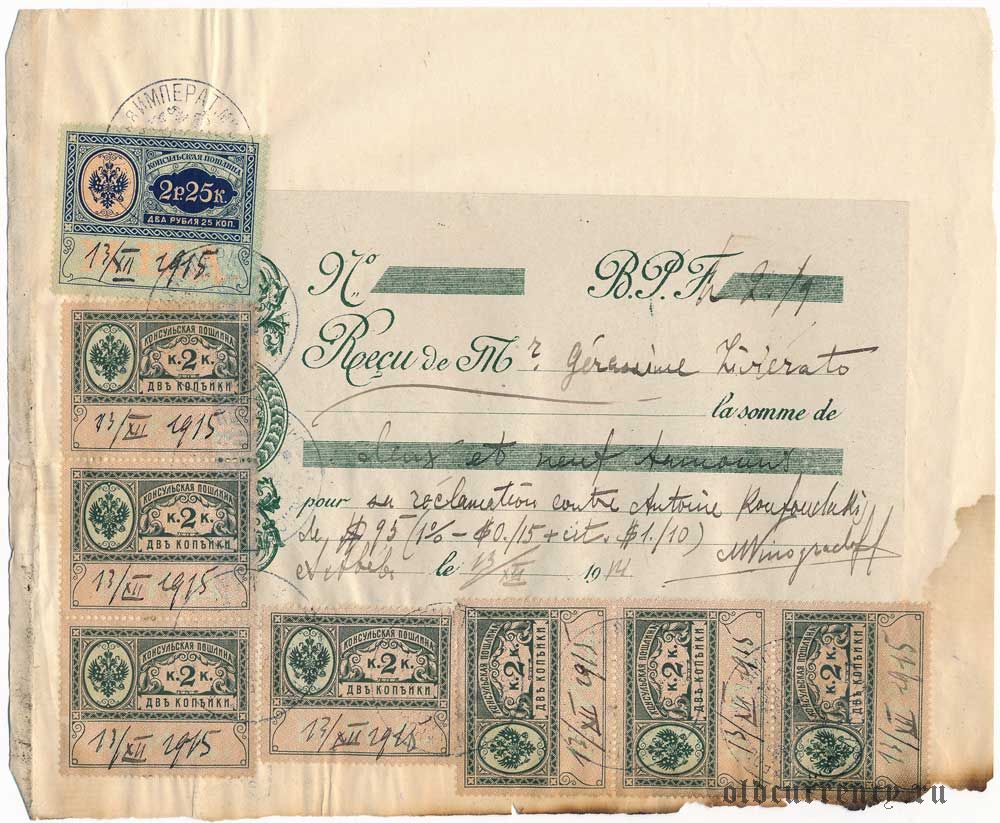 ИМПЕРАТ
КОНСУЛЬСКАЯ ПОШЛИНА
2Р.25К.
ДВА РУБЛЯ 25 КОП.
13/XII 1915
Nº B.P.F. 2/9
Reçu de Mr. Gérassime Livierato
la somme de
deux et neuf
pour sa réclamation contre Antoine
de $95 (1% - $0./15 + $1./10)
le 13/XII 1914
КОНСУЛЬСКАЯ ПОШЛИНА
К.2К.
ДВѢ КОПѢЙКИ
13/XII 1915
КОНСУЛЬСКАЯ ПОШЛИНА
К.2К.
ДВѢ КОПѢЙКИ
13/XII 1915
КОНСУЛЬСКАЯ ПОШЛИНА
К.2К.
ДВѢ КОПѢЙКИ
13/XII 1915
КОНСУЛЬСКАЯ ПОШЛИНА
К.2К.
ДВѢ КОПѢЙКИ
13/XII 1915
КОНСУЛЬСКАЯ ПОШЛИНА
К.2К.
ДВѢ КОПѢЙКИ
13/XII 1915
КОНСУЛЬСКАЯ ПОШЛИНА
К.2К.
ДВѢ КОПѢЙКИ
13/XII 1915
КОНСУЛЬСКАЯ ПОШЛИНА
К.2К.
ДВѢ КОПѢЙКИ
13/XII 1915
oldcurrency.ru